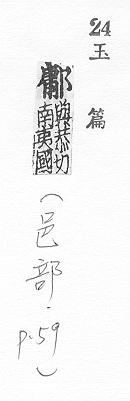 24玉篇
鄘
與恭切
南夷國
(邑部．p.59)